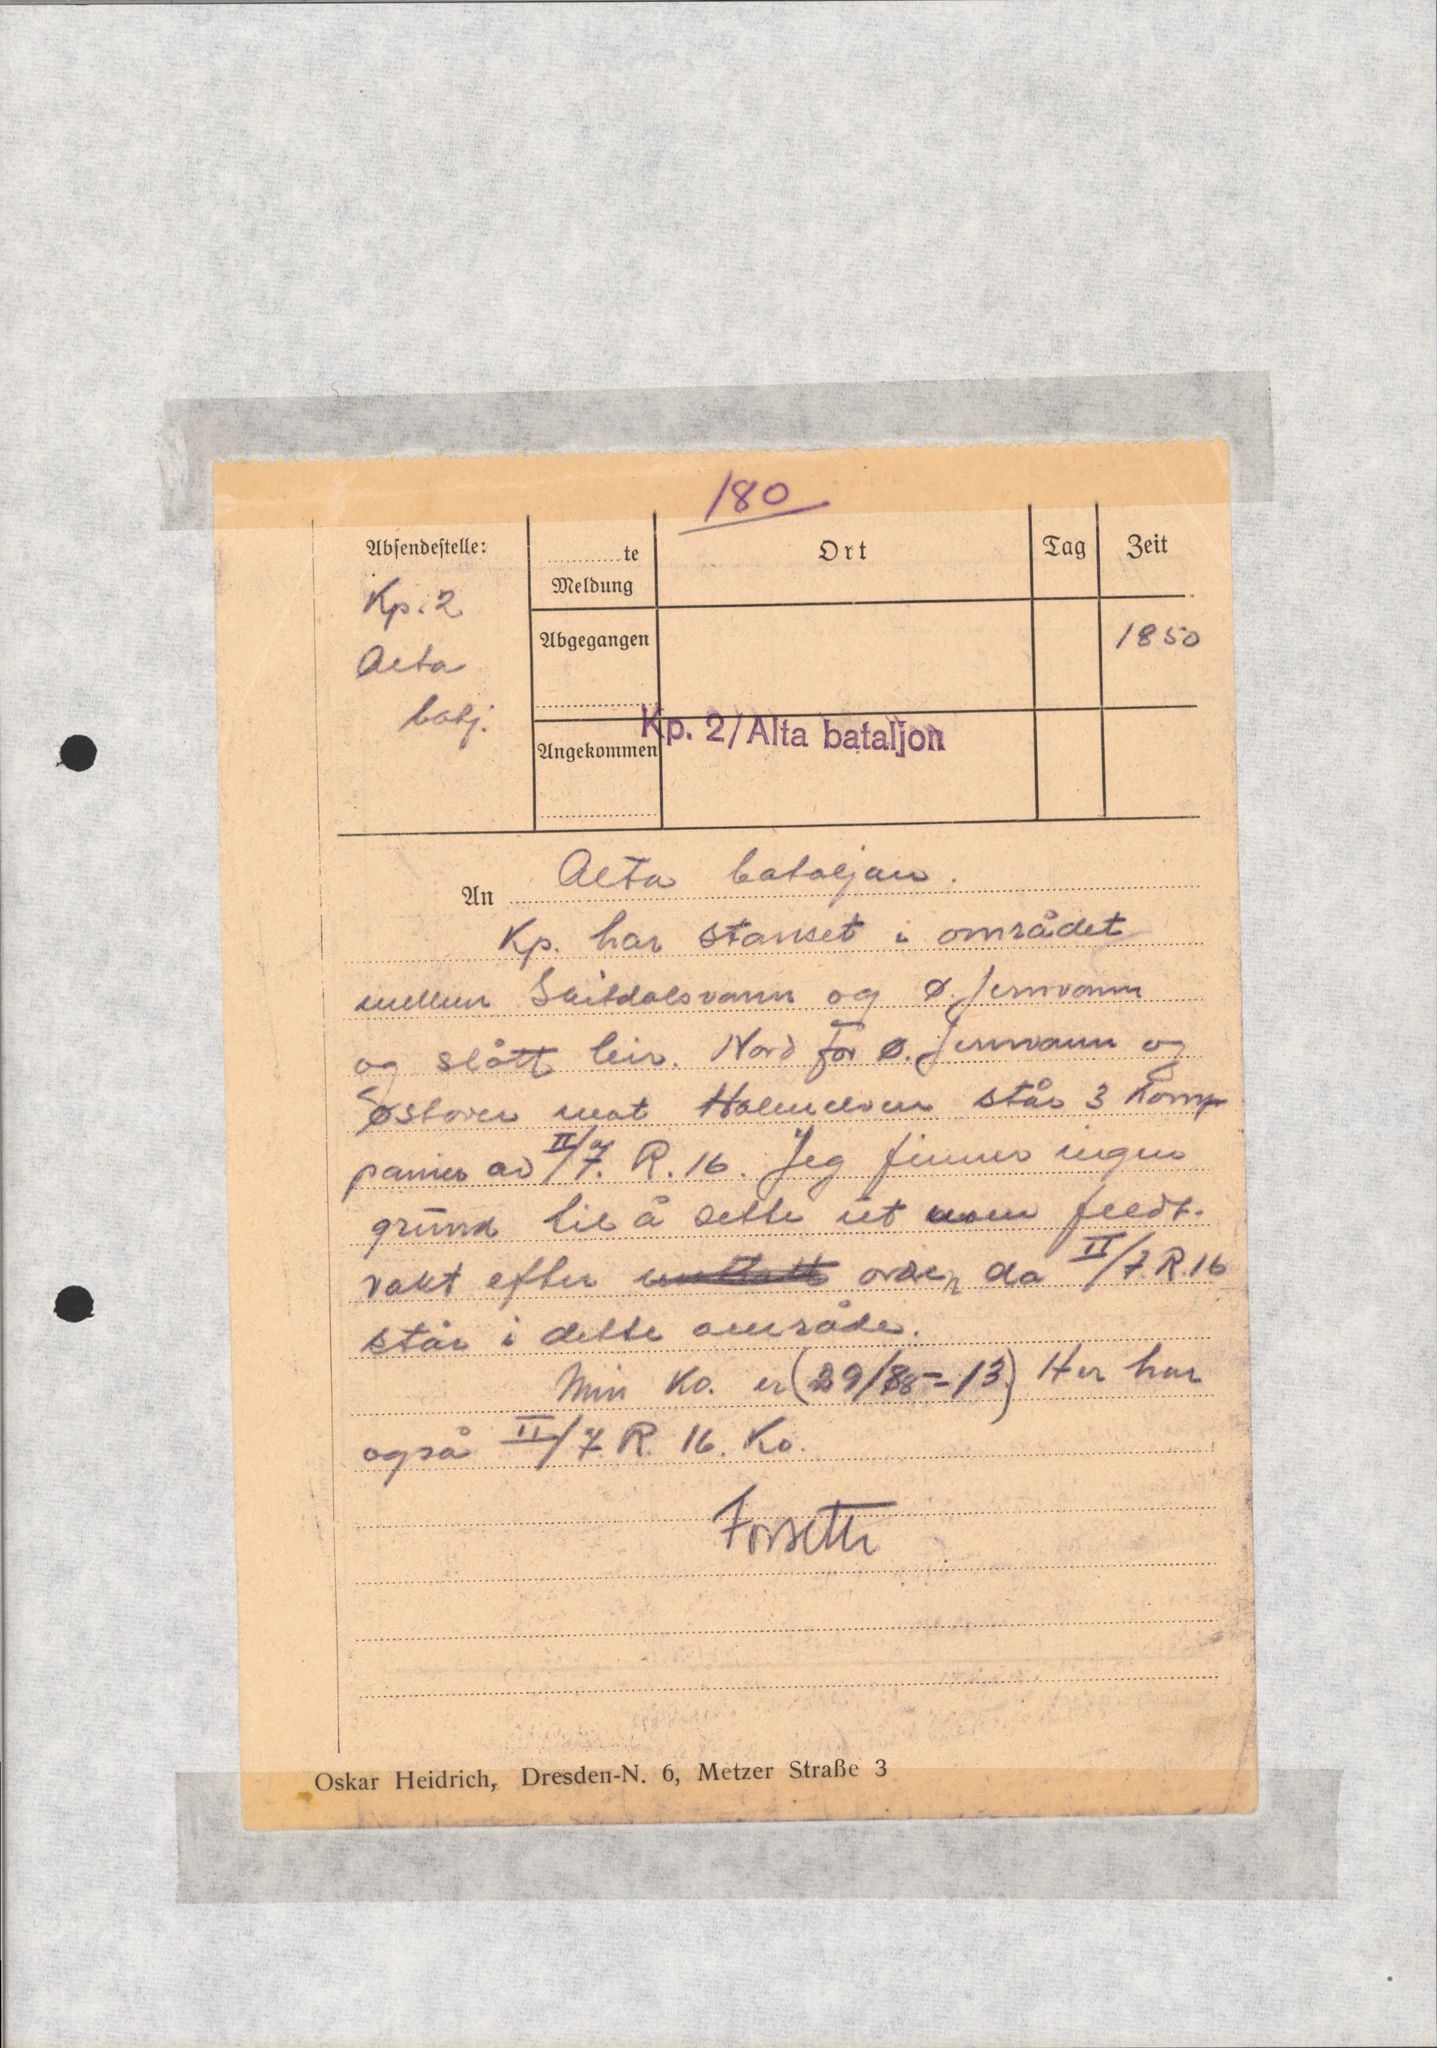 180
Absendestelle:
........te
Meldung
Ort
Tag
Zeit
Kp. 2
Alta
batj.
Abgegangen
1850
Kp. 2/Alta bataljon
Angekommen
An Alta bataljon.
Kp. har stanset i området
mellem Skitdalsvann og Ø. Jernvann
og slått leir. Nord for Ø. Jernvann og
østover mot står 3 Kom-
panier av II/7. R. 16. Jeg finner ingen
grunn til å sette ut noen feldt-
vakt efter orden, da II/7. R. 16
står i dette område.
Min Ko. er (29/88-13) Her har
også II/7. R. 16. Ko.
Forseth
Oskar Heidrich, Dresden-N. 6, Metzer Straße 3